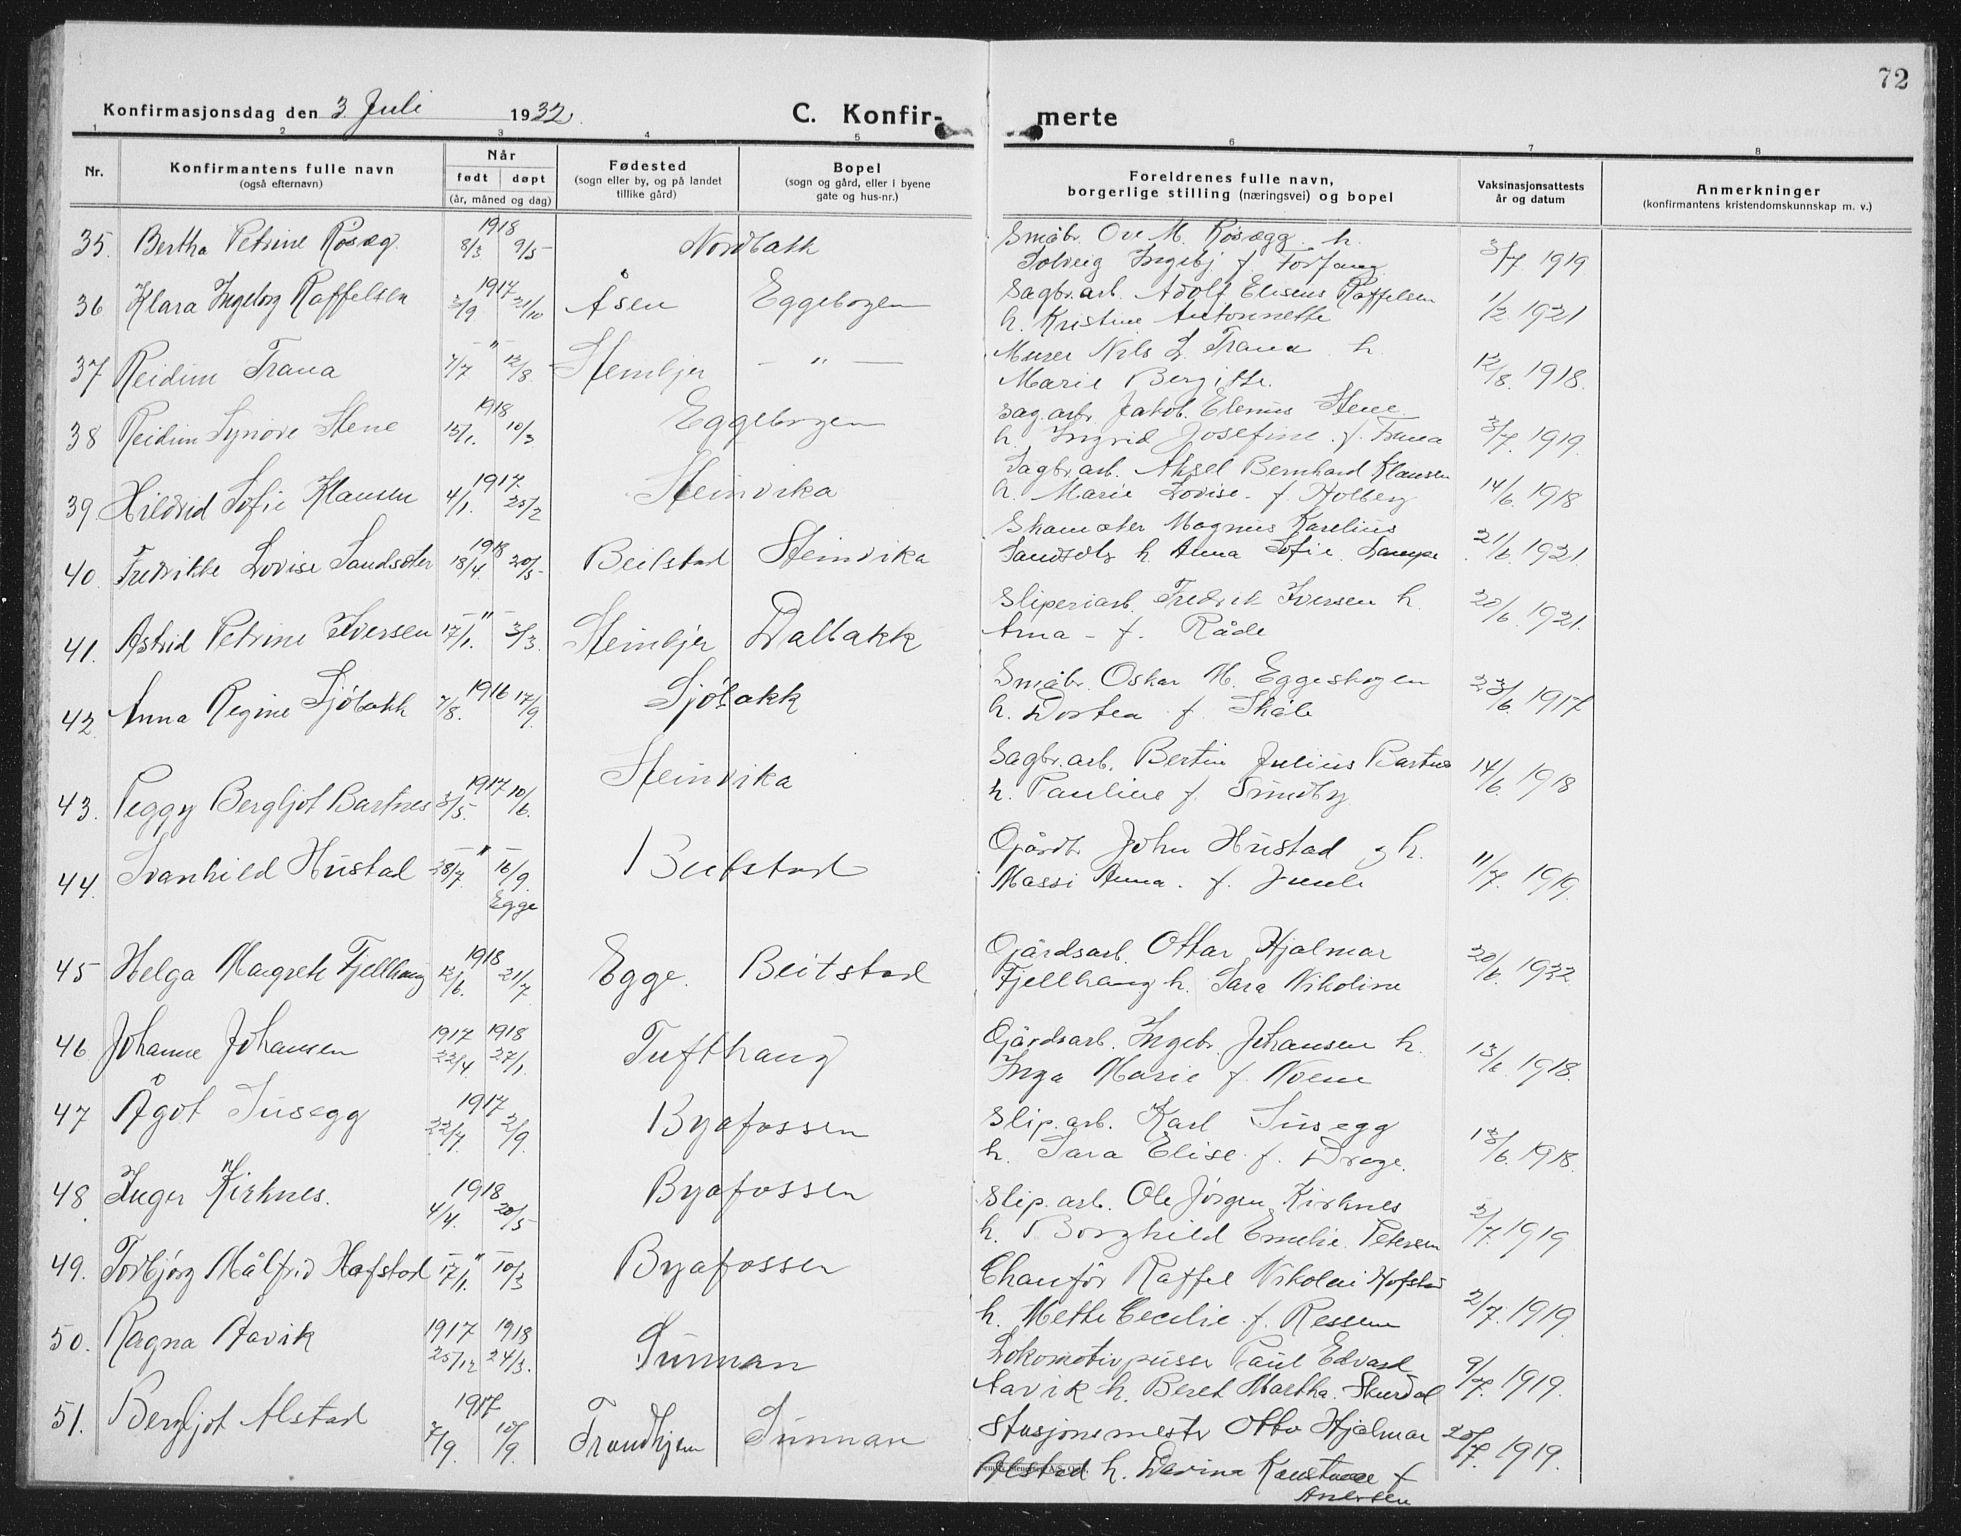 72
Konfirmasjonsdag den 3 Juli 1932. C. Konfir- merte
1 2 3 4 5 6 7 8
Nr. Konfirmantens fulle navn (også efternavn) Når født døpt (år, måned og dag) Fødested (sogn eller by, og på landet tillike gård) Bopel (sogn og gård, eller i byene gate og hus-nr.) Foreldrenes fulle navn, borgerlige stilling (næringsvei) og bopel Vaksinasjonsattests år og datum Anmerkninger (konfirmantens kristendomskunnskap m. v.)
35. Bertha Petrine Røsæg. 1918 8/3 9/5 Nordbakk Småbr. Ove M. Røsægg h. 3/7 1919
Solveig Ingebj f Forfang
36 Klara Ingeborg Raffelsen 1917 3/9 21/10 Åsen Eggebogen Sagbr.arb. Adolf Eliseus Raffelsen 1/2 1921
h. Kristine Antonnette
37 Reidun Trana – " – 7/7 12/8 Steinkjer – " – Murer Nils L. Trana h. 12/8. 1918.
Marie Bergitte.
38 Reidun Synøve Stene 1918 15/1. 10/3 Eggebogen Sag.arb. Jakob Elenus Stene 3/7. 1919.
h. Ingrid Josefine. f. Trana
39 Hildrid Sofie Klausen 1917. 4/1. 25/2 Steinvika Sagbr.arb. Aksel Bernhard Klausen 14/6 1918
h. Marie Lovise. f. Holberg
40. Fredrikke Lovise Sandseter 1918 18/4. 20/5 Beitstad Steinvika Skomaker Magnus Karelius 21/6 1921.
h. Anna Sofie
41. Astrid Petrine Iversen – " – 17/1. 3/3. Steinkjer Dalbakk Sliperiarb. Fredrik Iversen h. 20/6. 1921.
Arna – f. Råde
42. Anna Regine Sjøbakk 1916 7/8. 17/9. Sjøbakk Småbr. Oskar M. Eggeskogen 23/6. 1917
h. Dortea f. Skåle
43. Peggy Bergljot Bartnes 1917 3/5. 10/6. Steinvika Sagbr.arb. Bertin Julius Bartnes 14/6. 1918
h. Pauline f. Sundby
44. Svanhild Hustad – " – 28/7 16/9. Egge Beitstad Gårdbr. John Hustad og h. 11/7. 1919.
Massi Anna. f. Juul
45 Helga Margrete Fjellhaug 1918 12/6. 21/7. Egge. Beitstad Gårdsarb. Ottar Hjalmar 20/6. 1932
Fjellhaug h. Sara Nikoline
46 Johanne Johansen 1917 22/4. 1918 27/1. Tufthaug Gårdsarb. Ingebr. Johansen h. 13/6. 1918.
Inga Marie f. Noem
47 Ågot Susegg 1917 22/7. 2/9. Byafossen Slip.arb. Karl Susegg 13/6. 1918.
h. Sara Elise f. Drage.
48. Inger Kirknes. 1918 4/4. 20/5 Byafossen Slip.arb. Ole Jørgen Kirknes 2/7 1919
h. Borghild Emelie. Petersen
49. Torbjørg Målfrid Hafstad – " – 17/1. 10/3 Byafossen Chauför Raffel Nikolai Hofstad 2/7. 1919.
h. Mette Cecilie f. Ressem
50. Ragna Aavik 1917 25/12 1918 24/3. Sunnan Lokomotivpusser Paul Edvard 9/7. 1919.
Aavik h. Beret Martha. Skurdal
51. Bergljot Alstad 1917 7/9. 10/9. Trondhjem Sunnan Stasjonsmester Otto Hjalmar 1919.
Alstad h. Davina f
Andersen